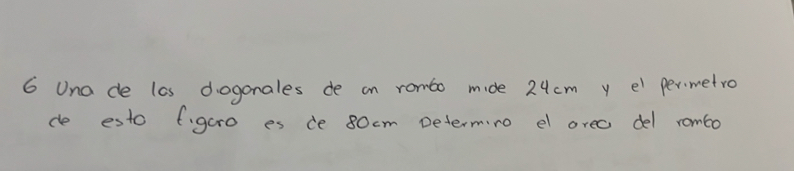 6 Una de las diagonales de un rombo mide 24cm y el perimetro
de esta figura es de 80cm Determina el area del rombo